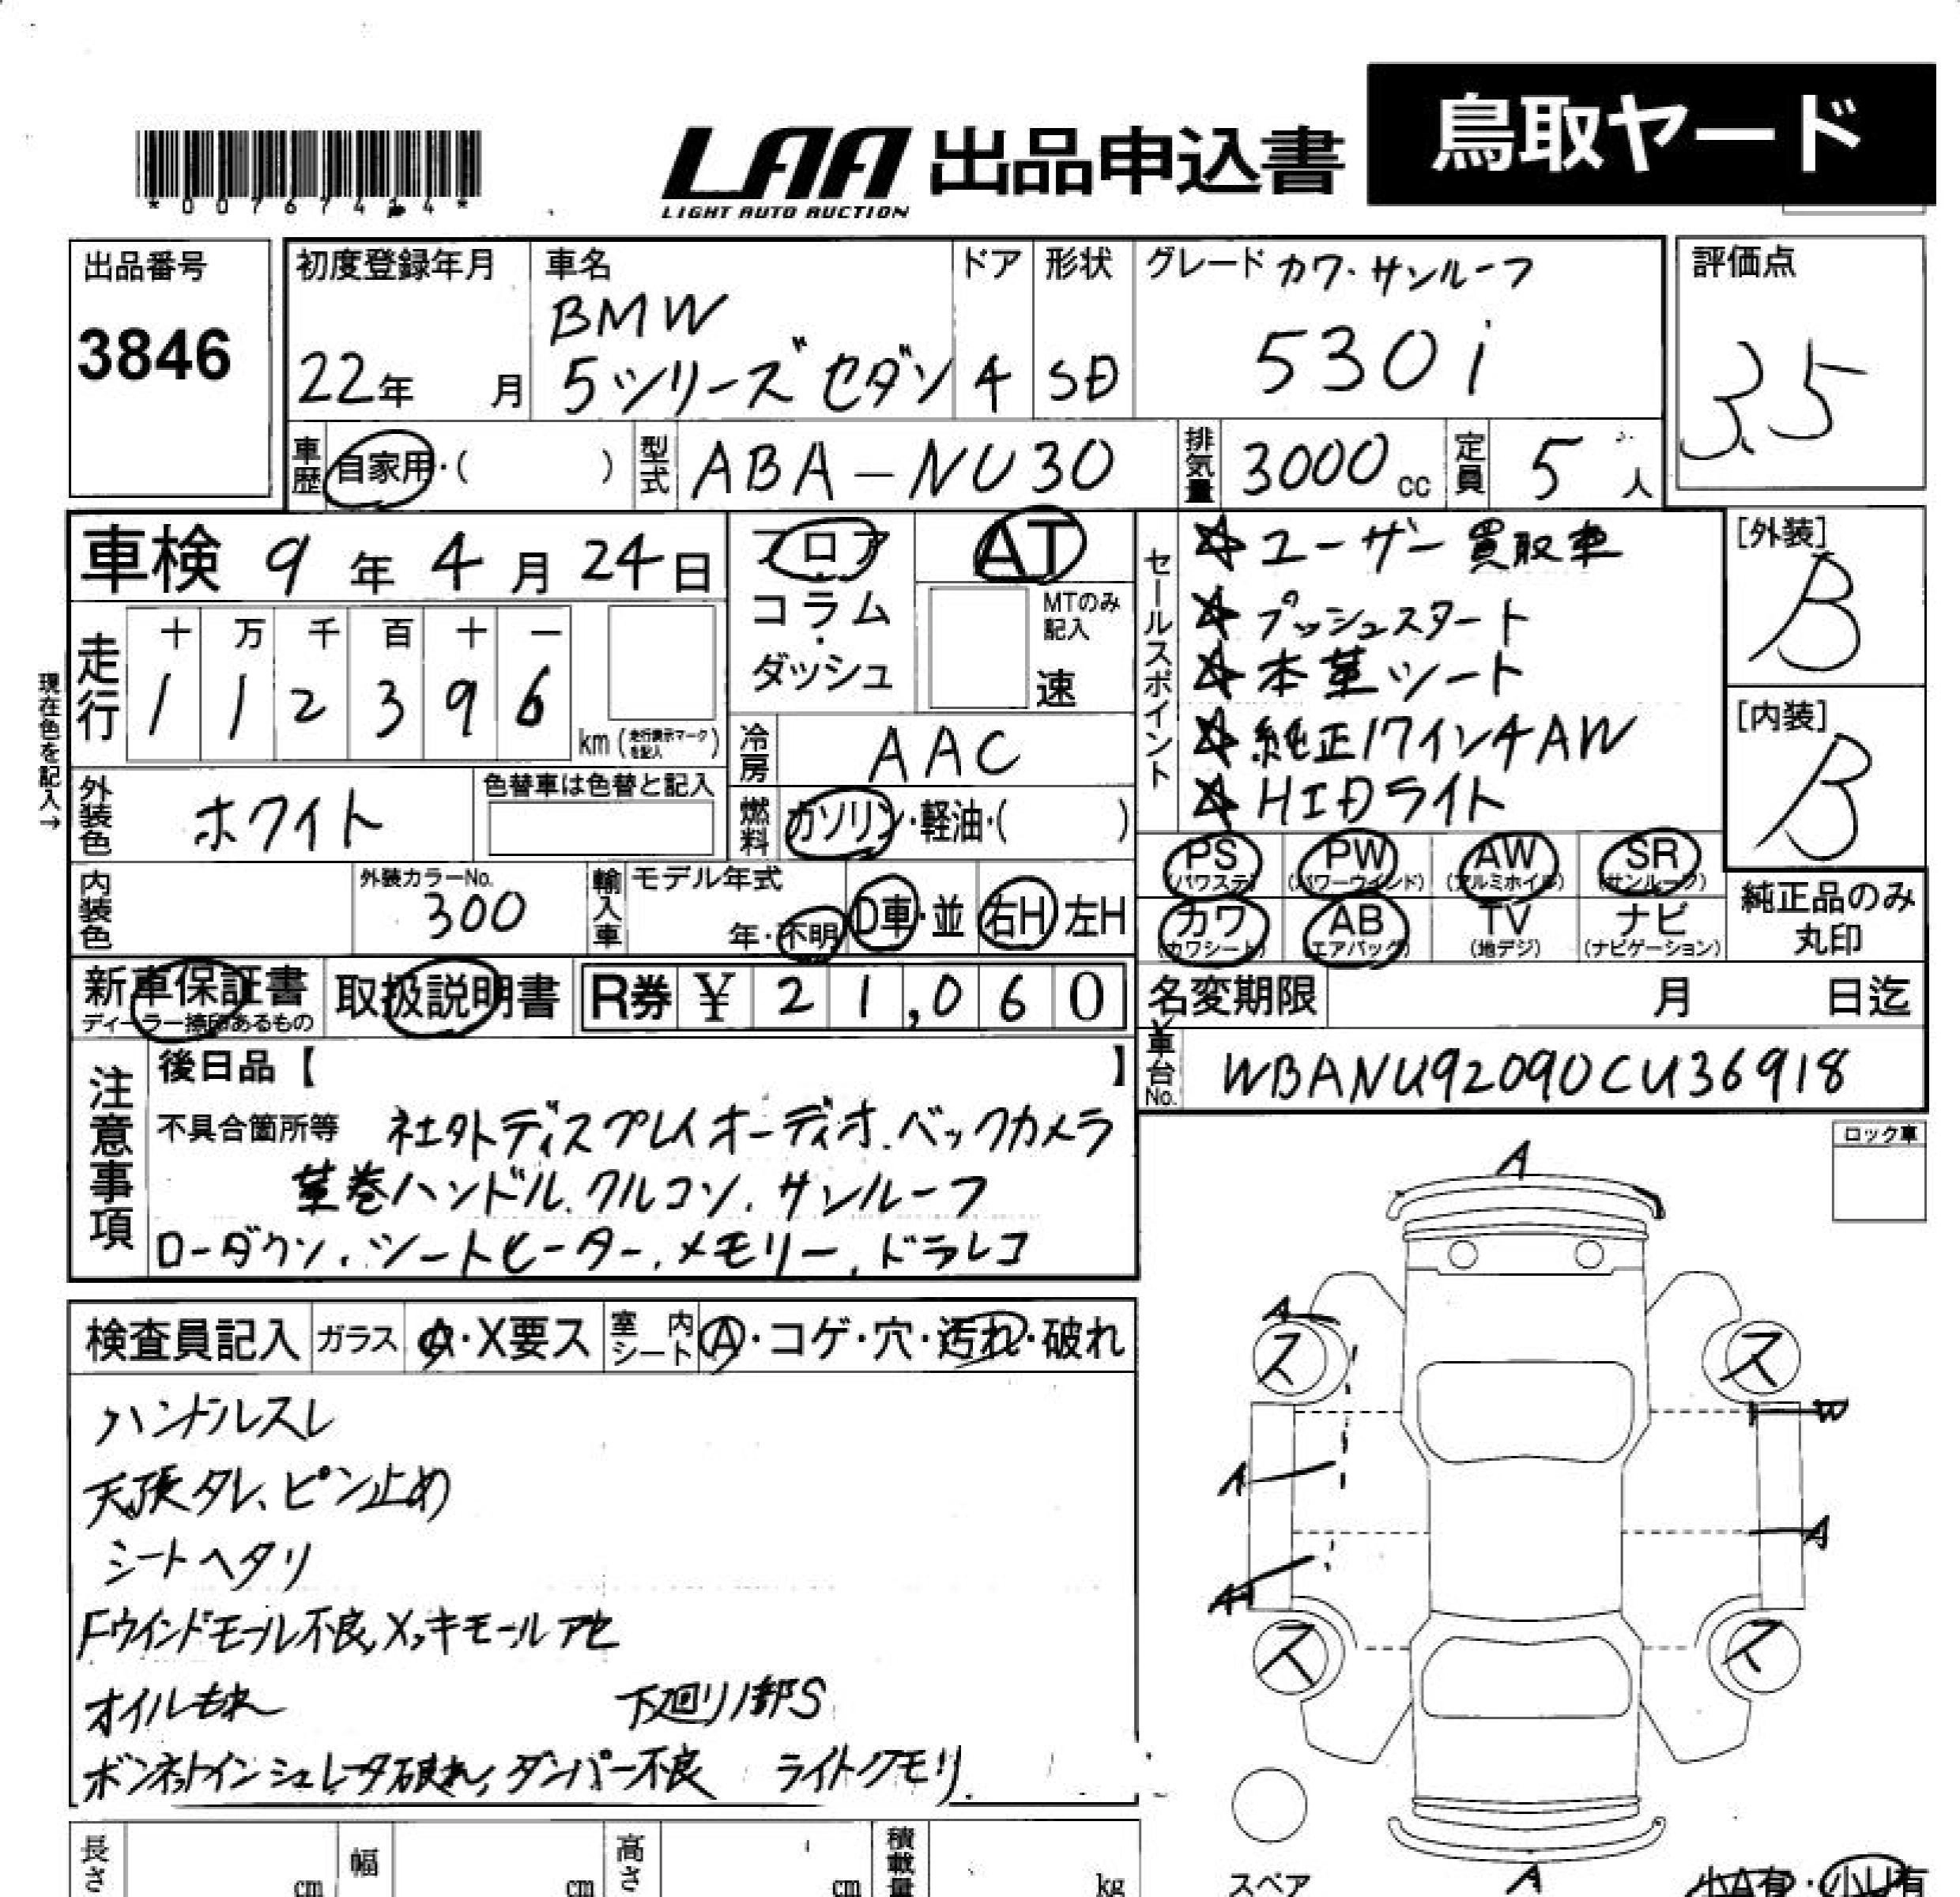 鳥取ヤード
LAA 出品申込書
LIGHT AUTO AUCTION
出品番号
3846
初度登録年月
22年 月
車名
BMW
5シリーズ セダン
ドア
4
形状
SD
グレード カワ・サンルーフ
530i
評価点
3.5
車歴 自家用・( )
型式 ABA-NU30
排気量 3000 cc
定員 5 人
車検 9年 4月 24日
フロア・コラム・ダッシュ
AT
MTのみ記入
速
セールスポイント
☆ユーザー買取車
☆プッシュスタート
☆本革シート
☆純正17インチAW
☆HIDライト
[外装]
B
[内装]
B
現在色を記入→
走行
十 万 千 百 十 一
1 1 2 3 9 6
km (走行表示マークを記入)
冷房 AAC
外装色 ホワイト
色替車は色替と記入
燃料 ガソリン・軽油・( )
PS (パワステ) PW (パワーウインド) AW (アルミホイル) SR (サンルーフ)
カワ (カワシート) AB (エアバッグ) TV (地デジ) ナビ (ナビゲーション)
純正品のみ丸印
内装色
外装カラーNo.
300
輸入車
モデル年式
年・不明
D車・並
右H 左H
新車保証書
ディーラー捺印あるもの
取扱説明書
R券 ¥ 21,060
名変期限 月 日迄
車台No. WBANU92090CU36918
注意事項
後日品【 】
不具合箇所等 社外ディスプレイオーディオ、バックカメラ
革巻ハンドル、クルコン、サンルーフ
ローダウン、シートヒーター、メモリー、ドラレコ
ロック車
検査員記入 ガラス A・X要ス 室内シート A・コゲ・穴・汚れ・破れ
ハンドルスレ
天張タレ、ピン止め
シートヘタリ
Fウインドモール不良、メッキモールアセ
オイルもれ 下廻り1部S
ボンネットインシュレータ破れ、ダンパー不良 ライトクモリ
A
A
ス
ス
W
A
A
A
ス
ス
A
スペア
小A有・小U有
長さ cm
幅 cm
高さ cm
積載量 kg